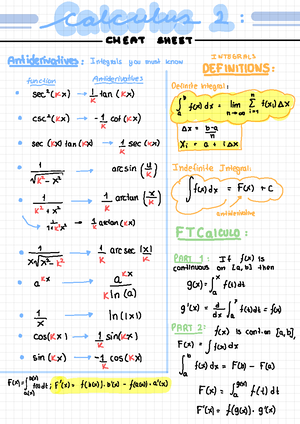 Calculus 2:
CHEAT SHEET
Antiderivatives: Integrals you must know
function Antiderivatives
sec²(Kx) → 1/K tan (Kx)
csc²(Kx) → -1/K cot (Kx)
sec (Kx) tan(Kx) → 1/K sec(Kx)
1/√(K²-x²) → arcsin (x/K)
1/(K²+x²) → 1/K arctan (x/K)
→ 1/K arctan(Kx)
1/(x√(x²-K²)) → 1/K arc sec |x|/K
a^(Kx) → a^(Kx)/(K ln (a))
1/x → ln(|x|)
cos(Kx) → 1/K sin(Kx)
sin (Kx) → -1/K cos(Kx)
F'(x) = f(b(x)).b'(x) - f(a(x)).a'(x)
INTEGRALS
DEFINITIONS:
Definite integral:
∫ₐᵇ f(x) dx = lim n→∞ Σ i=1 n f(xᵢ) Δx
Δx = (b-a)/n
xᵢ = a + iΔx
Indefinite Integral:
∫ f(x) dx = F(x) + C
antiderivative
FTCalculo:
PART 1: If f(x) is
continuous on [a,b] then
g(x) = ∫ₐˣ f(t) dt
g'(x) = d/dx ∫ₐˣ f(t) dt = f(x)
PART 2: f(x) is cont. on [a,b],
F(x) = ∫ f(x) dx
∫ₐᵇ f(x) dx = F(b) - F(a)
F(x) = ∫ₐ^g(x) f(t) dt
F'(x) = f(g(x)) · g'(x)